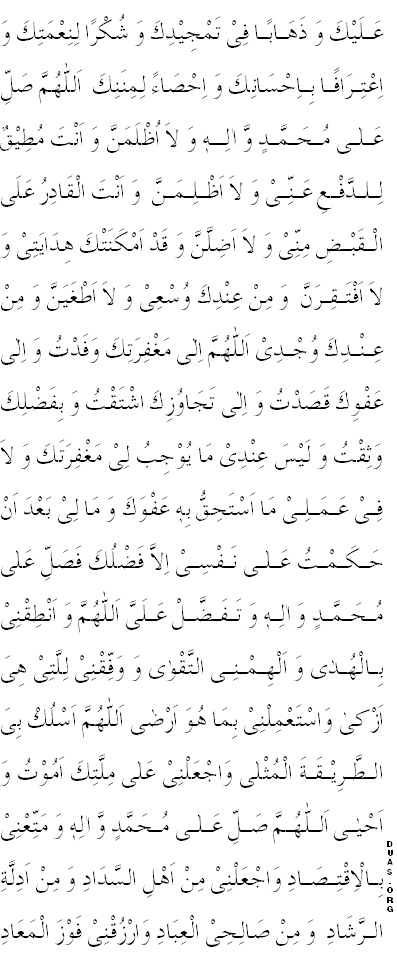 عَلَيْكَ وَ ذَهَابًا فِىْ تَمْجِيْدِكَ وَ شُكْرًا لِنِعْمَتِكَ وَ
اِعْتِرَافًا بِاِحْسَانِكَ وَ اِحْصَاءً لِمِنَنِكَ اَللّٰهُمَّ صَلِّ
عَلٰى مُحَمَّدٍ وَّ اٰلِهٖ وَ لاَ اُظْلَمَنَّ وَ اَنْتَ مُطِيْقٌ
لِلدَّفْعِ عَنِّىْ وَ لاَ اَظْلِمَنَّ وَ اَنْتَ الْقَادِرُ عَلَى
الْقَبْضِ مِنِّىْ وَ لاَ اَضِلَّنَّ وَ قَدْ اَمْكَنَتْكَ هِدَايَتِىْ وَ
لاَ اَفْتَقِرَنَّ وَ مِنْ عِنْدِكَ وُسْعِىْ وَ لاَ اَطْغَيَنَّ وَ مِنْ
عِنْدِكَ وُجْدِىْ اَللّٰهُمَّ اِلٰى مَغْفِرَتِكَ وَفَدْتُ وَ اِلٰى
عَفْوِكَ قَصَدْتُ وَ اِلٰى تَجَاوُزِكَ اشْتَقْتُ وَ بِفَضْلِكَ
وَثِقْتُ وَ لَيْسَ عِنْدِىْ مَا يُوْجِبُ لِىْ مَغْفِرَتَكَ وَ لاَ
فِىْ عَمَلِىْ مَا اَسْتَحِقُّ بِهٖ عَفْوَكَ وَ مَا لِىْ بَعْدَ اَنْ
حَكَمْتُ عَلٰى نَفْسِىْ اِلاَّ فَضْلُكَ فَصَلِّ عَلٰى
مُحَمَّدٍ وَ اٰلِهٖ وَ تَفَضَّلْ عَلَىَّ اَللّٰهُمَّ وَ اَنْطِقْنِىْ
بِالْهُدٰى وَ اَلْهِمْنِى التَّقْوٰى وَ وَفِّقْنِىْ لِلَّتِىْ هِىَ
اَزْكىٰ وَاسْتَعْمِلْنِىْ بِمَا هُوَ اَرْضٰى اَللّٰهُمَّ اسْلُكْ بِىَ
الطَّرِيْقَةَ الْمُثْلٰى وَاجْعَلْنِىْ عَلٰى مِلَّتِكَ اَمُوْتُ وَ
اَحْيٰى اَللّٰهُمَّ صَلِّ عَلٰى مُحَمَّدٍ وَّ اٰلِهٖ وَ مَتِّعْنِىْ
بِالْاِقْتِصَادِ وَاجْعَلْنِىْ مِنْ اَهْلِ السَّدَادِ وَ مِنْ اَدِلَّةِ
الرَّشَادِ وَ مِنْ صَالِحِىْ الْعِبَادِ وَارْزُقْنِىْ فَوْزَ الْمَعَادِ
DUAS.ORG